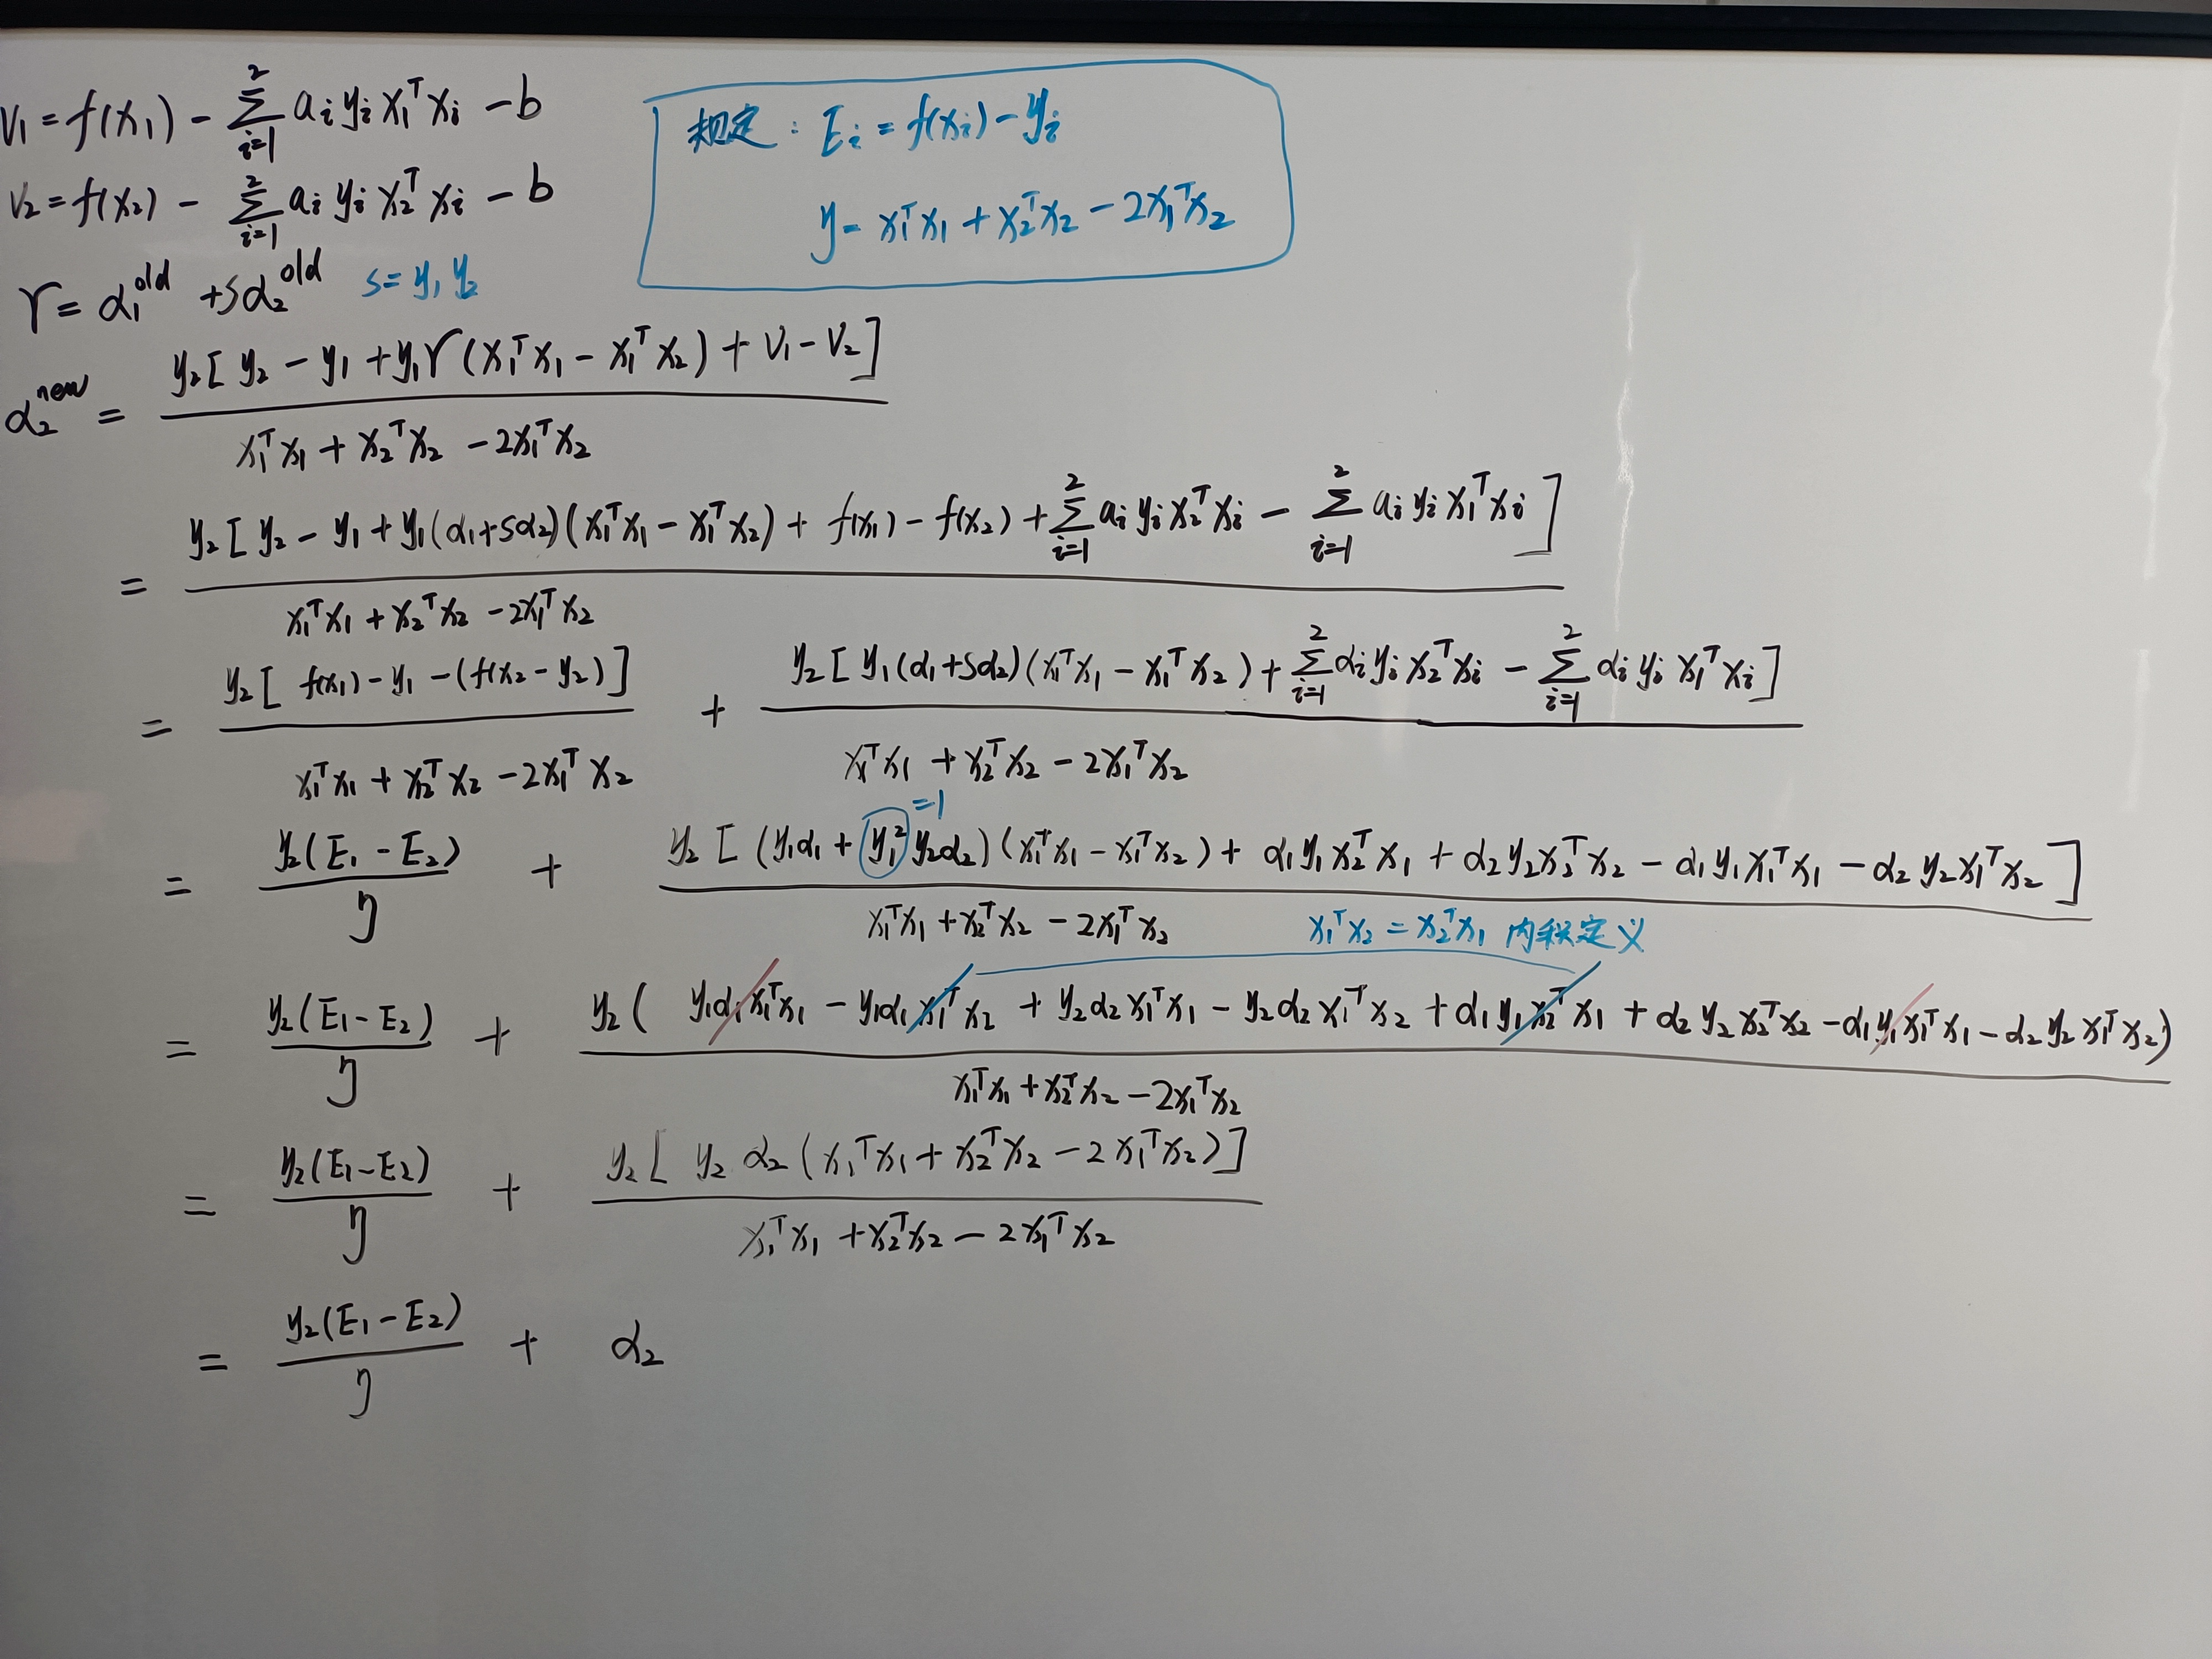 V₁ = f(x₁) - Σ_{i=1}^{2} aᵢ yᵢ x₁ᵀ xᵢ - b
V₂ = f(x₂) - Σ_{i=1}^{2} aᵢ yᵢ x₂ᵀ xᵢ - b
规定: Eᵢ = f(xᵢ) - yᵢ
η = x₁ᵀx₁ + x₂ᵀx₂ - 2x₁ᵀx₂
γ = α₁^{old} + sα₂^{old} s = y₁ y₂
α₂^{new} = \frac{y₂[y₂ - y₁ + y₁γ(x₁ᵀx₁ - x₁ᵀx₂) + V₁ - V₂]}{x₁ᵀx₁ + x₂ᵀx₂ - 2x₁ᵀx₂}
= \frac{y₂[y₂ - y₁ + y₁(α₁+sα₂)(x₁ᵀx₁ - x₁ᵀx₂) + f(x₁) - f(x₂) + Σ_{i=1}^{2} aᵢ yᵢ x₂ᵀxᵢ - Σ_{i=1}^{2} aᵢ yᵢ x₁ᵀxᵢ]}{x₁ᵀx₁ + x₂ᵀx₂ - 2x₁ᵀx₂}
= \frac{y₂[f(x₁) - y₁ - (f(x₂ - y₂)]}{x₁ᵀx₁ + x₂ᵀx₂ - 2x₁ᵀx₂} + \frac{y₂[y₁(α₁+sα₂)(x₁ᵀx₁ - x₁ᵀx₂) + Σ_{i=1}^{2} αᵢyᵢx₂ᵀxᵢ - Σ_{i=1}^{2} αᵢyᵢx₁ᵀxᵢ]}{x₁ᵀx₁ + x₂ᵀx₂ - 2x₁ᵀx₂}
=1
= \frac{y₂(E₁ - E₂)}{η} + \frac{y₂[(y₁α₁ + y₁²y₂α₂)(x₁ᵀx₁ - x₁ᵀx₂) + α₁y₁x₂ᵀx₁ + α₂y₂x₂ᵀx₂ - α₁y₁x₁ᵀx₁ - α₂y₂x₁ᵀx₂]}{x₁ᵀx₁ + x₂ᵀx₂ - 2x₁ᵀx₂}
x₁ᵀx₂ = x₂ᵀx₁ 内积定义
= \frac{y₂(E₁ - E₂)}{η} + \frac{y₂(y₁α₁x₁ᵀx₁ - y₁α₁x₁ᵀx₂ + y₂α₂x₁ᵀx₁ - y₂α₂x₁ᵀx₂ + α₁y₁x₂ᵀx₁ + α₂y₂x₂ᵀx₂ - α₁y₁x₁ᵀx₁ - α₂y₂x₁ᵀx₂)}{x₁ᵀx₁ + x₂ᵀx₂ - 2x₁ᵀx₂}
= \frac{y₂(E₁ - E₂)}{η} + \frac{y₂[y₂α₂(x₁ᵀx₁ + x₂ᵀx₂ - 2x₁ᵀx₂)]}{x₁ᵀx₁ + x₂ᵀx₂ - 2x₁ᵀx₂}
= \frac{y₂(E₁ - E₂)}{η} + α₂